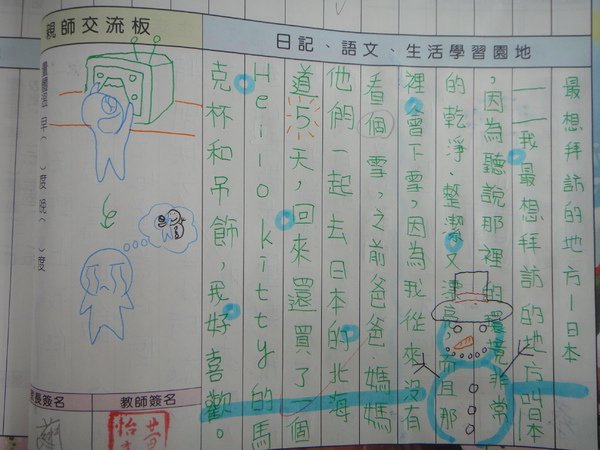 日記、語文、生活學習園地
最想拜訪的地方—日本
我最想拜訪的地方叫日本
，因為聽說那裡的環境非常
的乾淨、整潔又漂亮而且那
裡會下雪，因為我從來沒有
看個雪，之前爸爸、媽媽
他們一起去日本的北海
道5天，回來還買了一個
Hello kitty的馬
克杯和吊飾，我好喜歡。
親師交流板
量體溫 早( )度晚( )度
長簽名
教師簽名